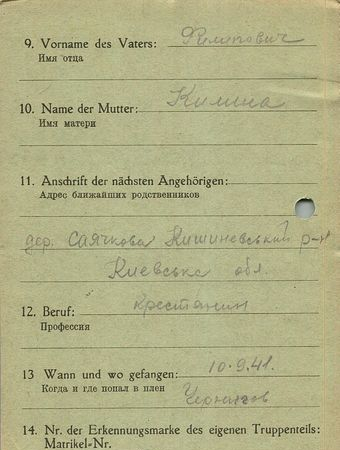 9. Vorname des Vaters: Филипович
Имя отца
10. Name der Mutter:
Имя матери
11. Anschrift der nächsten Angehörigen:
Адрес ближайших родственников
дер. Саячкова Кишиневський р-н
Киевська обл.
12. Beruf: крестянин
Профессия
13 Wann und wo gefangen: 10.9.41.
Когда и где попал в плен Чернигов
14. Nr. der Erkennungsmarke des eigenen Truppenteils:
Matrikel-Nr.